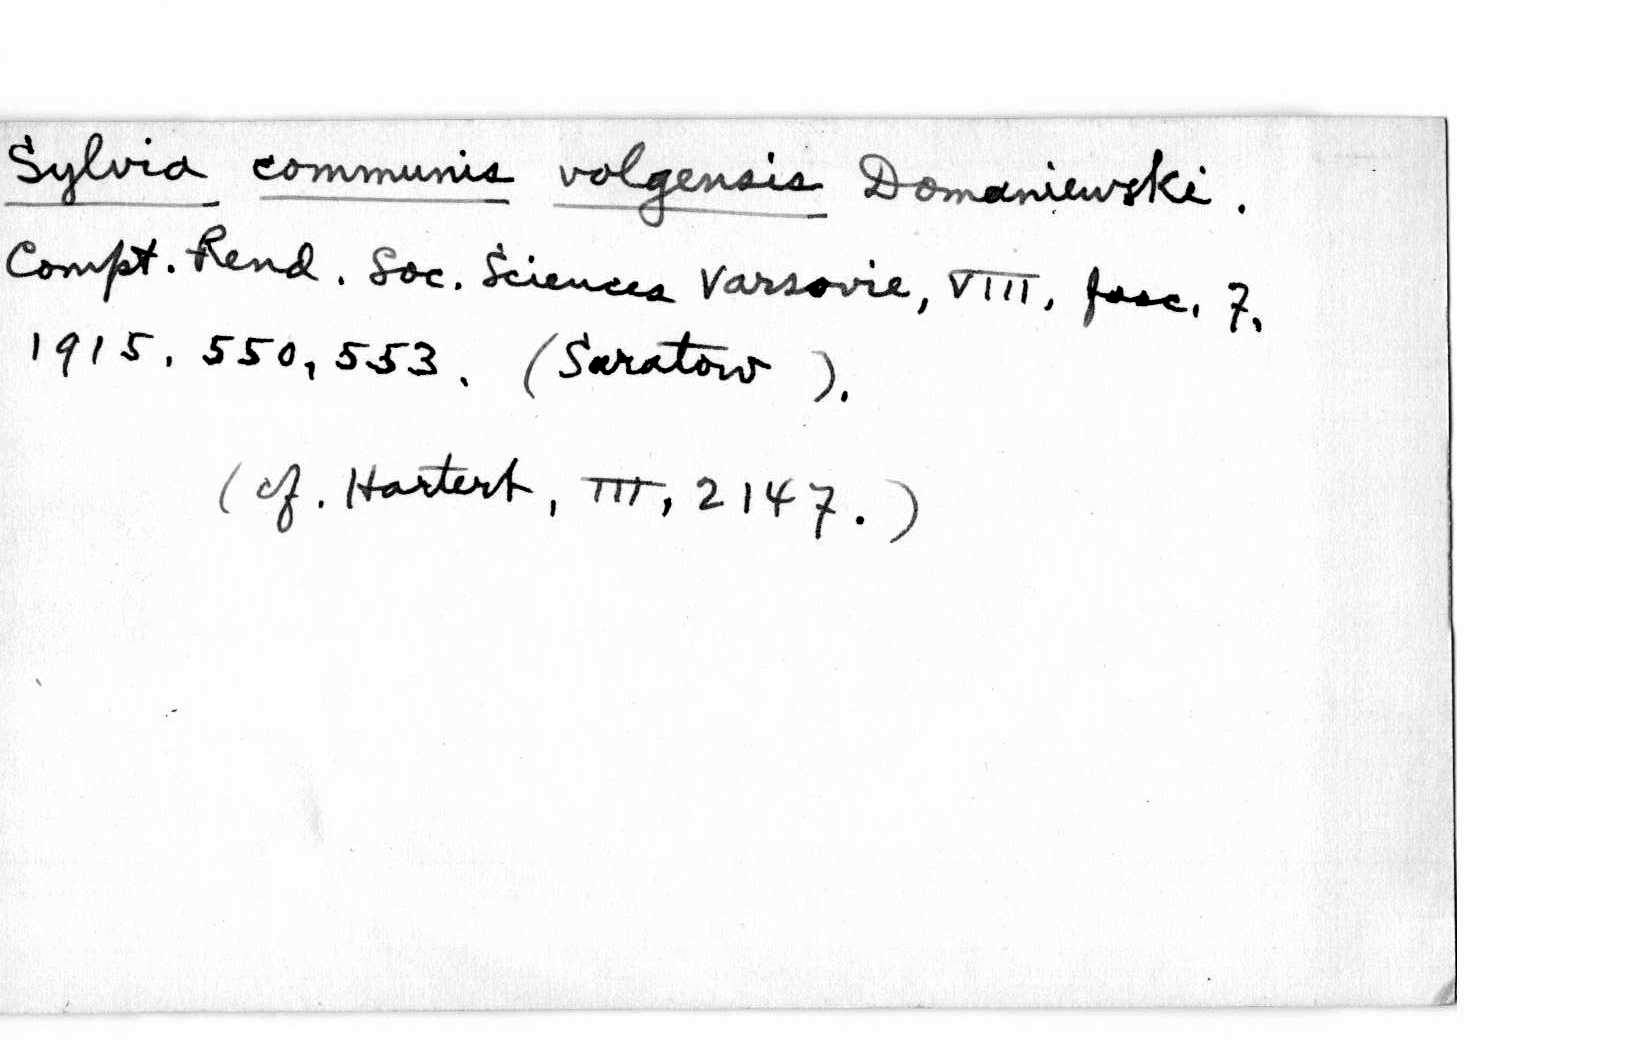 Sylvia communis volgensis Domaniewski.
Compt. Rend. Soc. Sciences Varsovie, VIII, fasc. 7,
1915, 550, 553. (Saratow).
(cf. Hartert, III, 2147.)